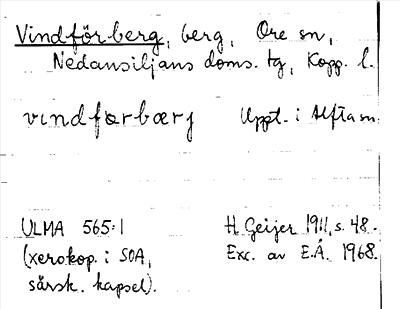 Vindförberg, berg, Ore sn,
Nedansiljans doms. tg, Kopp. l.
vindførbærj Uppt. i Alfta sn
ULMA 565:1 H. Geijer 1911, s. 48.
(xerokop. i SOA, Exc. av E.Å. 1968.
särsk. kapsel).